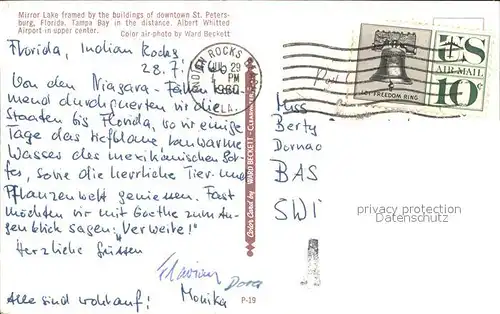 Mirror Lake framed by the buildings of downtown St. Peters-
burg, Florida. Tampa Bay in the distance. Albert Whitted
Airport in upper center.
Color air-photo by Ward Beckett
Florida, Indian Rocks
28.7.
Von den Niagara-Fällen kom-
mend durchquerten wir die
Staaten bis Florida, wo wir einige
Tage das tiefblaue, lauwarme
Wasser des mexikanischen Gol-
fes, sowie die herrliche Tier- und
Pflanzenwelt genießen. Fast
möchten wir mit Goethe zum Au-
genblick sagen: "Verweile!"
Herzliche Grüssen
Flavian Dora
Alle sind wohlauf! Monika
P-19
Color Card by WARD BECKETT
ROCKS
JUL 29
PM
1960
FLA.
LET FREEDOM RING
US
AIR MAIL
10¢
Miss
Berty
Dornao
BAS
SWI
privacy protection
Datenschutz